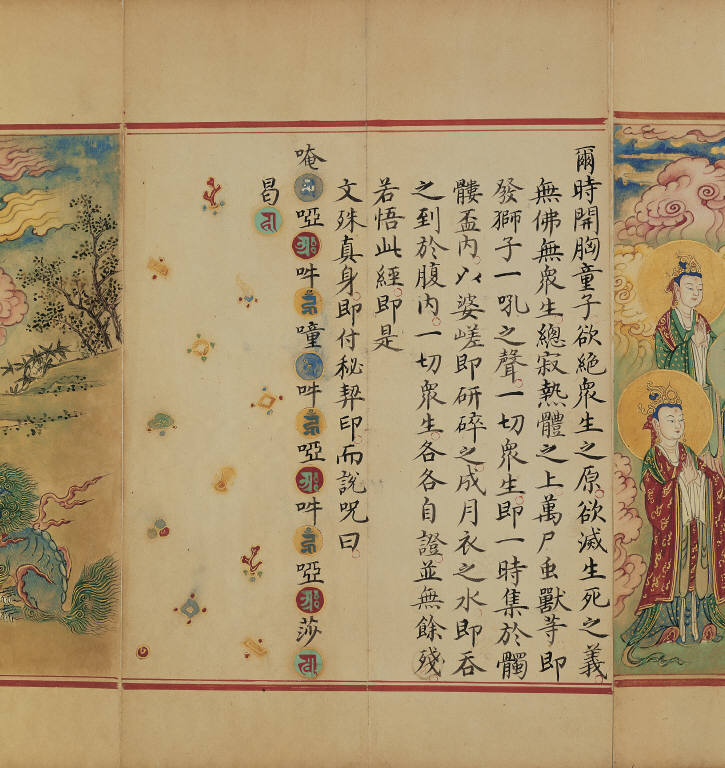 爾時開胸童子欲絶衆生之原欲滅生死之義
無佛無衆生總寂熱體之上萬尸虫獸等即
發獅子一吼之聲一切衆生即一時集於髑
髏盃内以婆嵯即研碎之成月衣之水即吞
之到於腹内一切衆生各各自證並無餘殘
若悟此經即是
文殊真身即付秘契印而說呪曰
唵啞吽噇吽啞吽啞莎